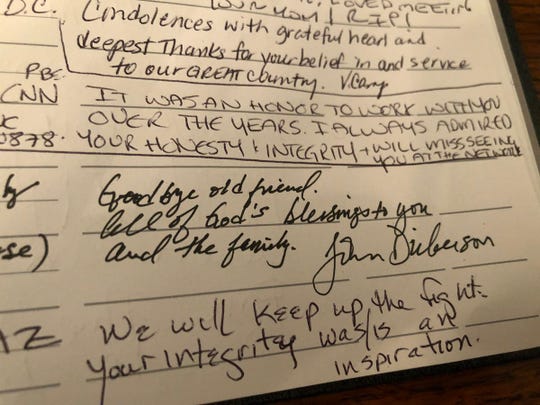 LOVED MEETING
YOUR MOM! R.I.P!
D.C. Condolences with grateful heart and
deepest Thanks for your belief in and service
to our GREAT country. V. Camp
PBE
CNN IT WAS AN HONOR TO WORK WITH YOU
OVER THE YEARS. I ALWAYS ADMIRED
0878. YOUR HONESTY + INTEGRITY + WILL MISS SEEING
YOU AT THE NETWORK
by Goodbye old friend.
All of God's blessings to you
se) and the family. John Dickerson
AZ We will keep up the fight.
your integrity was/is an
inspiration.